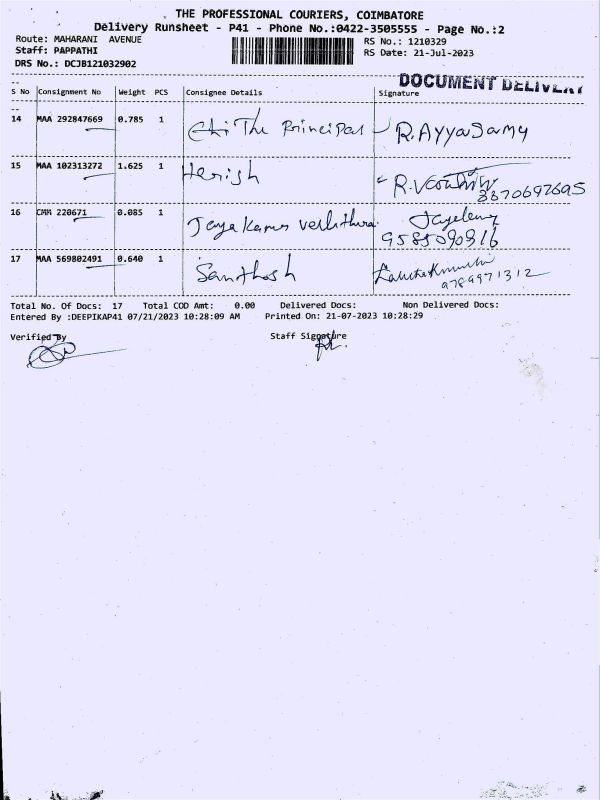 THE PROFESSIONAL COURIERS, COIMBATORE
Delivery Runsheet - P41 - Phone No.:0422-3505555 - Page No.:2
Route: MAHARANI AVENUE
Staff: PAPPATHI
DRS No.: DCJB121032902
RS No.: 1210329
RS Date: 21-Jul-2023
DOCUMENT DELIVERY
S No Consignment No Weight PCS Consignee Details Signature
14 MAA 292847669 0.785 1 The Principal R. Ayyasamy
15 MAA 102313272 1.625 1 Herish R.
16 CMM 220671 0.085 1 Jaya
9585090916
17 MAA 569802491 0.640 1 Santhosh
9789971312
Total No. Of Docs: 17 Total COD Amt: 0.00 Delivered Docs: Non Delivered Docs:
Entered By :DEEPIKAP41 07/21/2023 10:28:09 AM Printed On: 21-07-2023 10:28:29
Verified By Staff Signature